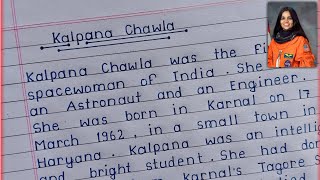 Kalpana Chawla
Kalpana Chawla was the Fi
spacewoman of India. She
an Astronaut and an Engineer.
She was born in Karnal on 17
March 1962, in a small town in
Haryana. Kalpana was an intelli
and bright student. She had do
Karnal's Tagore S